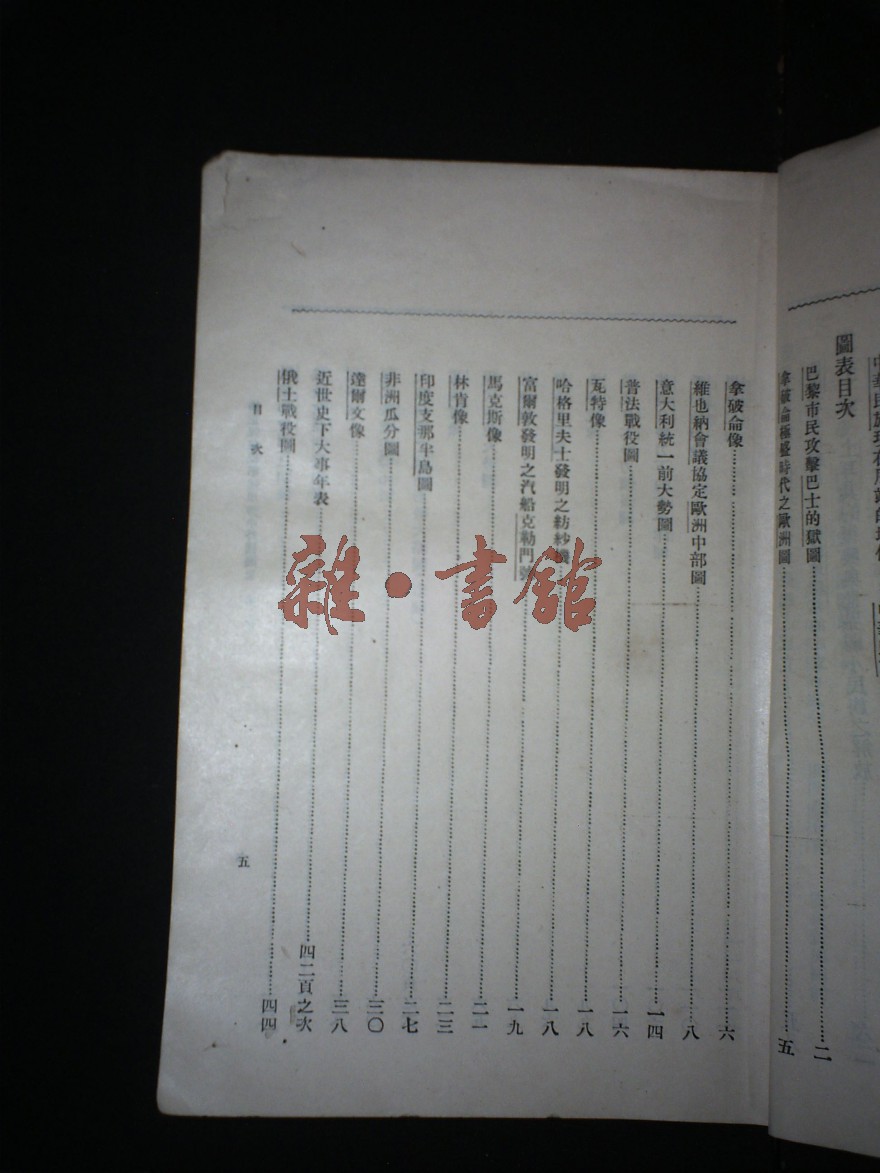 圖表目次
巴黎市民攻擊巴士的獄圖……二
拿破侖極盛時代之歐洲圖……五
拿破侖像……六
維也納會議協定歐洲中部圖……八
意大利統一前大勢圖……一四
普法戰役圖……一六
瓦特像……一八
哈格里夫士發明之紡紗機……一八
富爾敦發明之汽船克勒門號……一九
馬克斯像……二一
林肯像……二三
印度支那半島圖……二七
非洲瓜分圖……三〇
達爾文像……三八
近世史下大事年表……四二頁之次
俄土戰役圖……四四
目次
五
雜·書館